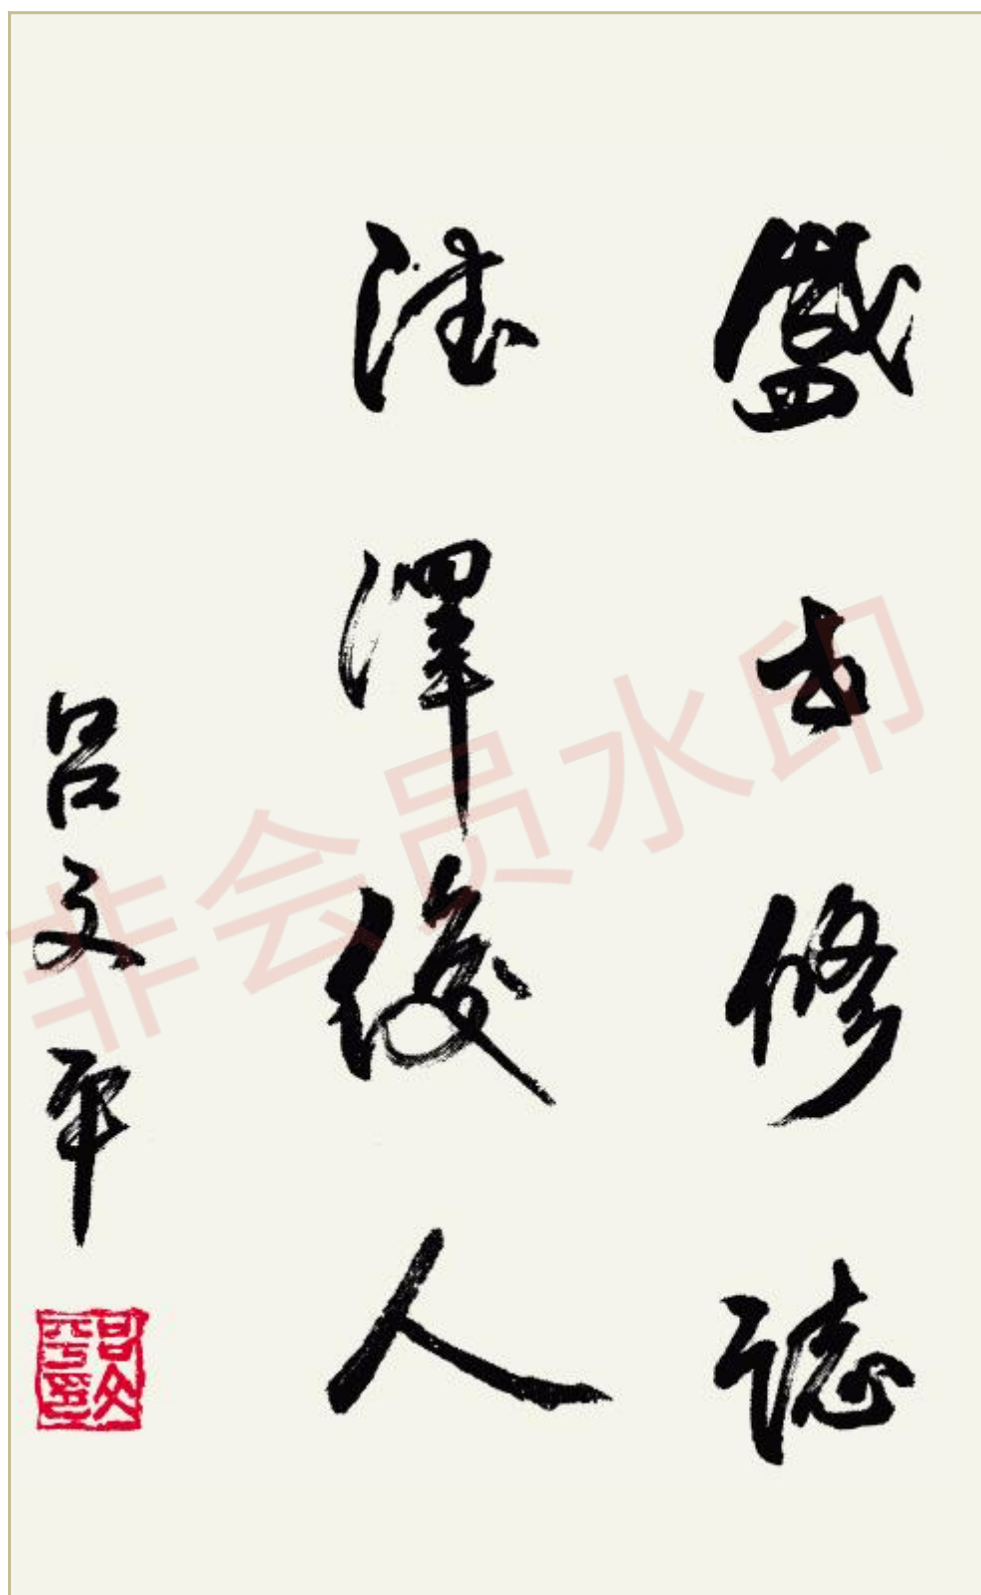 盛世修誌
德澤後人
吕文平
吕文平印
非会员水印